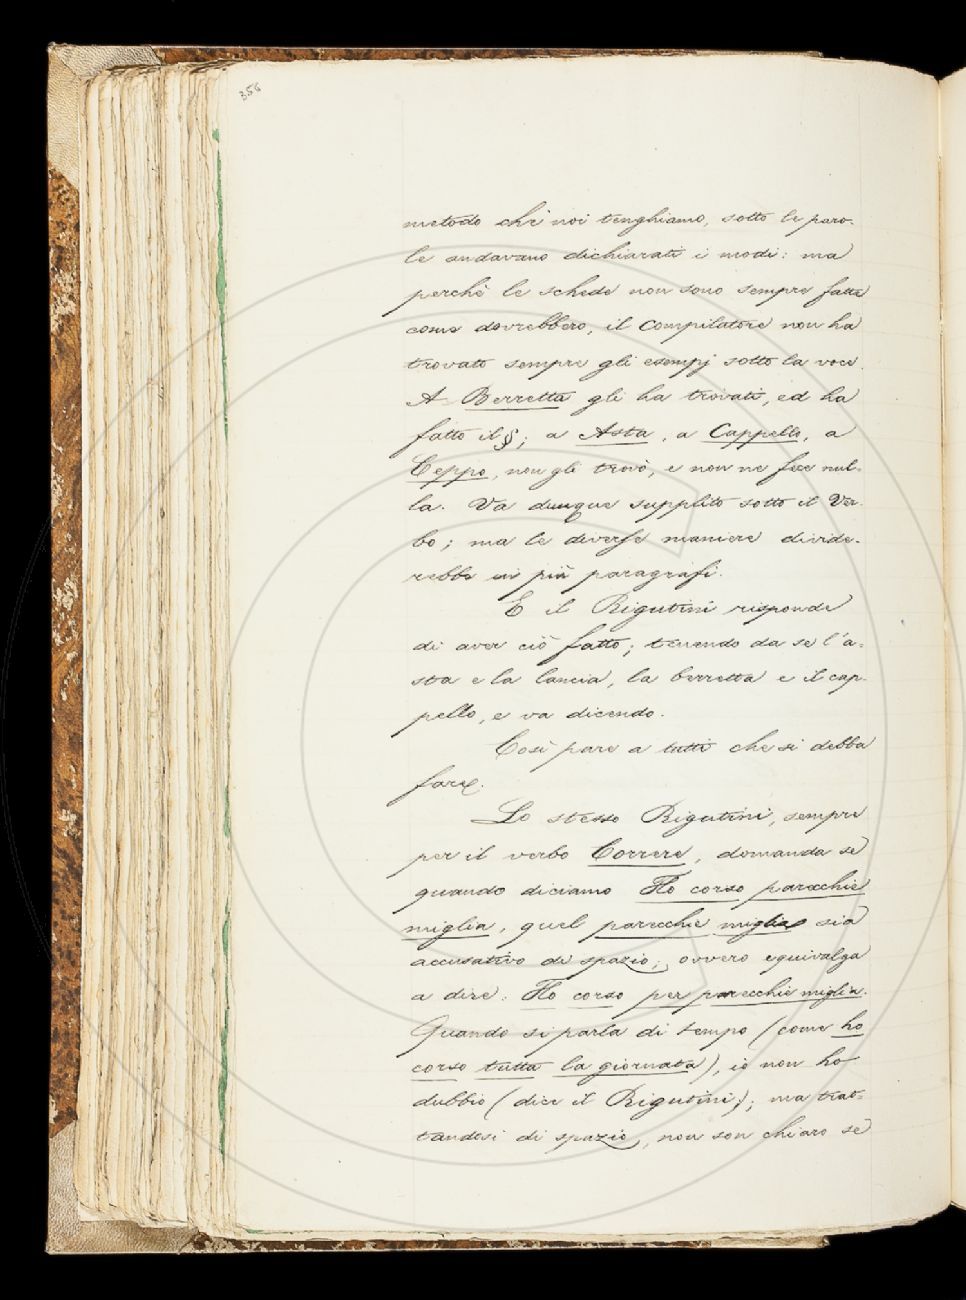 356
metodo che noi tenghiamo, sotto le paro-
le andavano dichiarati i modi: ma
perchè le schede non sono sempre fatte
come dovrebbero, il Compilatore non ha
trovato sempre gli esempj sotto la voce.
A Berretta gli ha trovati, ed ha
fatto il §; a Asta, a Cappello, a
Ceppo, non gli trovò, e non ne fece nul-
la. Va dunque supplito sotto il Ver-
bo; ma le diverse maniere divide-
rebbe in più paragrafi.
E il Rigutini risponde
di aver ciò fatto; tenendo da se l'a-
sta e la lancia, la berretta e il cap-
pello, e va dicendo.
Così pare a tutti che si debba
fare.
Lo stesso Rigutini, sempre
per il verbo Correre, domanda se
quando diciamo Ho corso parecchie
miglia, quel parecchie miglia sia
accusativo di spazio; ovvero equivalga
a dire: Ho corso per parecchie miglia.
Quando si parla di tempo (come ho
corso tutta la giornata), io non ho
dubbio (dice il Rigutini); ma trat-
tandosi di spazio, non son chiaro se